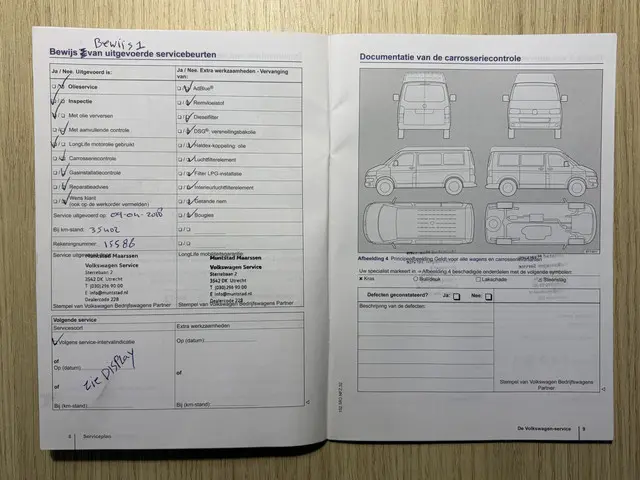 Bewijs 1
Bewijs van uitgevoerde servicebeurten
Ja / Nee. Uitgevoerd is:
Olieservice
Inspectie
Met olie verversen
Met aanvullende controle
LongLife motorolie gebruikt
Carrosseriecontrole
Gasinstallatiecontrole
Reparatieadvies
Wens klant
(ook op de werkorder vermelden)
Service uitgevoerd op:
Bij km-stand: 35402
Rekeningnummer: 15586
Service uitgevoerd door:
Muntstad Maarssen
Volkswagen Service
Sterrebaan 2
3542 DK Utrecht
T (030)296 90 00
E info@muntstad.nl
Dealercode 228
Stempel van Volkswagen Bedrijfswagens Partner
Ja / Nee. Extra werkzaamheden - Vervanging
van:
AdBlue®
Remvloeistof
Dieselfilter
DSG® versnellingsbakolie
Haldex-koppeling olie
Luchtfilterelement
Filter LPG-installatie
Interieurluchtfilterelement
Getande riem
Bougies
LongLife mobiliteitsgarantie
Muntstad Maarssen
Volkswagen Service
Sterrebaan 2
3542 DK Utrecht
T (030)296 90 00
E info@muntstad.nl
Dealercode 228
Stempel van Volkswagen Bedrijfswagens Partner
Volgende service
Servicesoort
Volgens service-intervalindicatie
of
Op (datum):
of
Bij (km-stand):
zie DISPLAY
Extra werkzaamheden:
Op (datum):
of
Bij (km-stand):
Serviceplan
Documentatie van de carrosseriecontrole
Afbeelding 4 Principeafbeelding: Geldt voor alle wagens en carrosserievarianten
Uw specialist markeert in → Afbeelding 4 beschadigde onderdelen met de volgende symbolen:
Kras
Buil/deuk
Lakschade
Steenslag
Defecten geconstateerd? Ja: Nee:
Beschrijving van de defecten:
Stempel van Volkswagen Bedrijfswagens
Partner
De Volkswagen-service 9